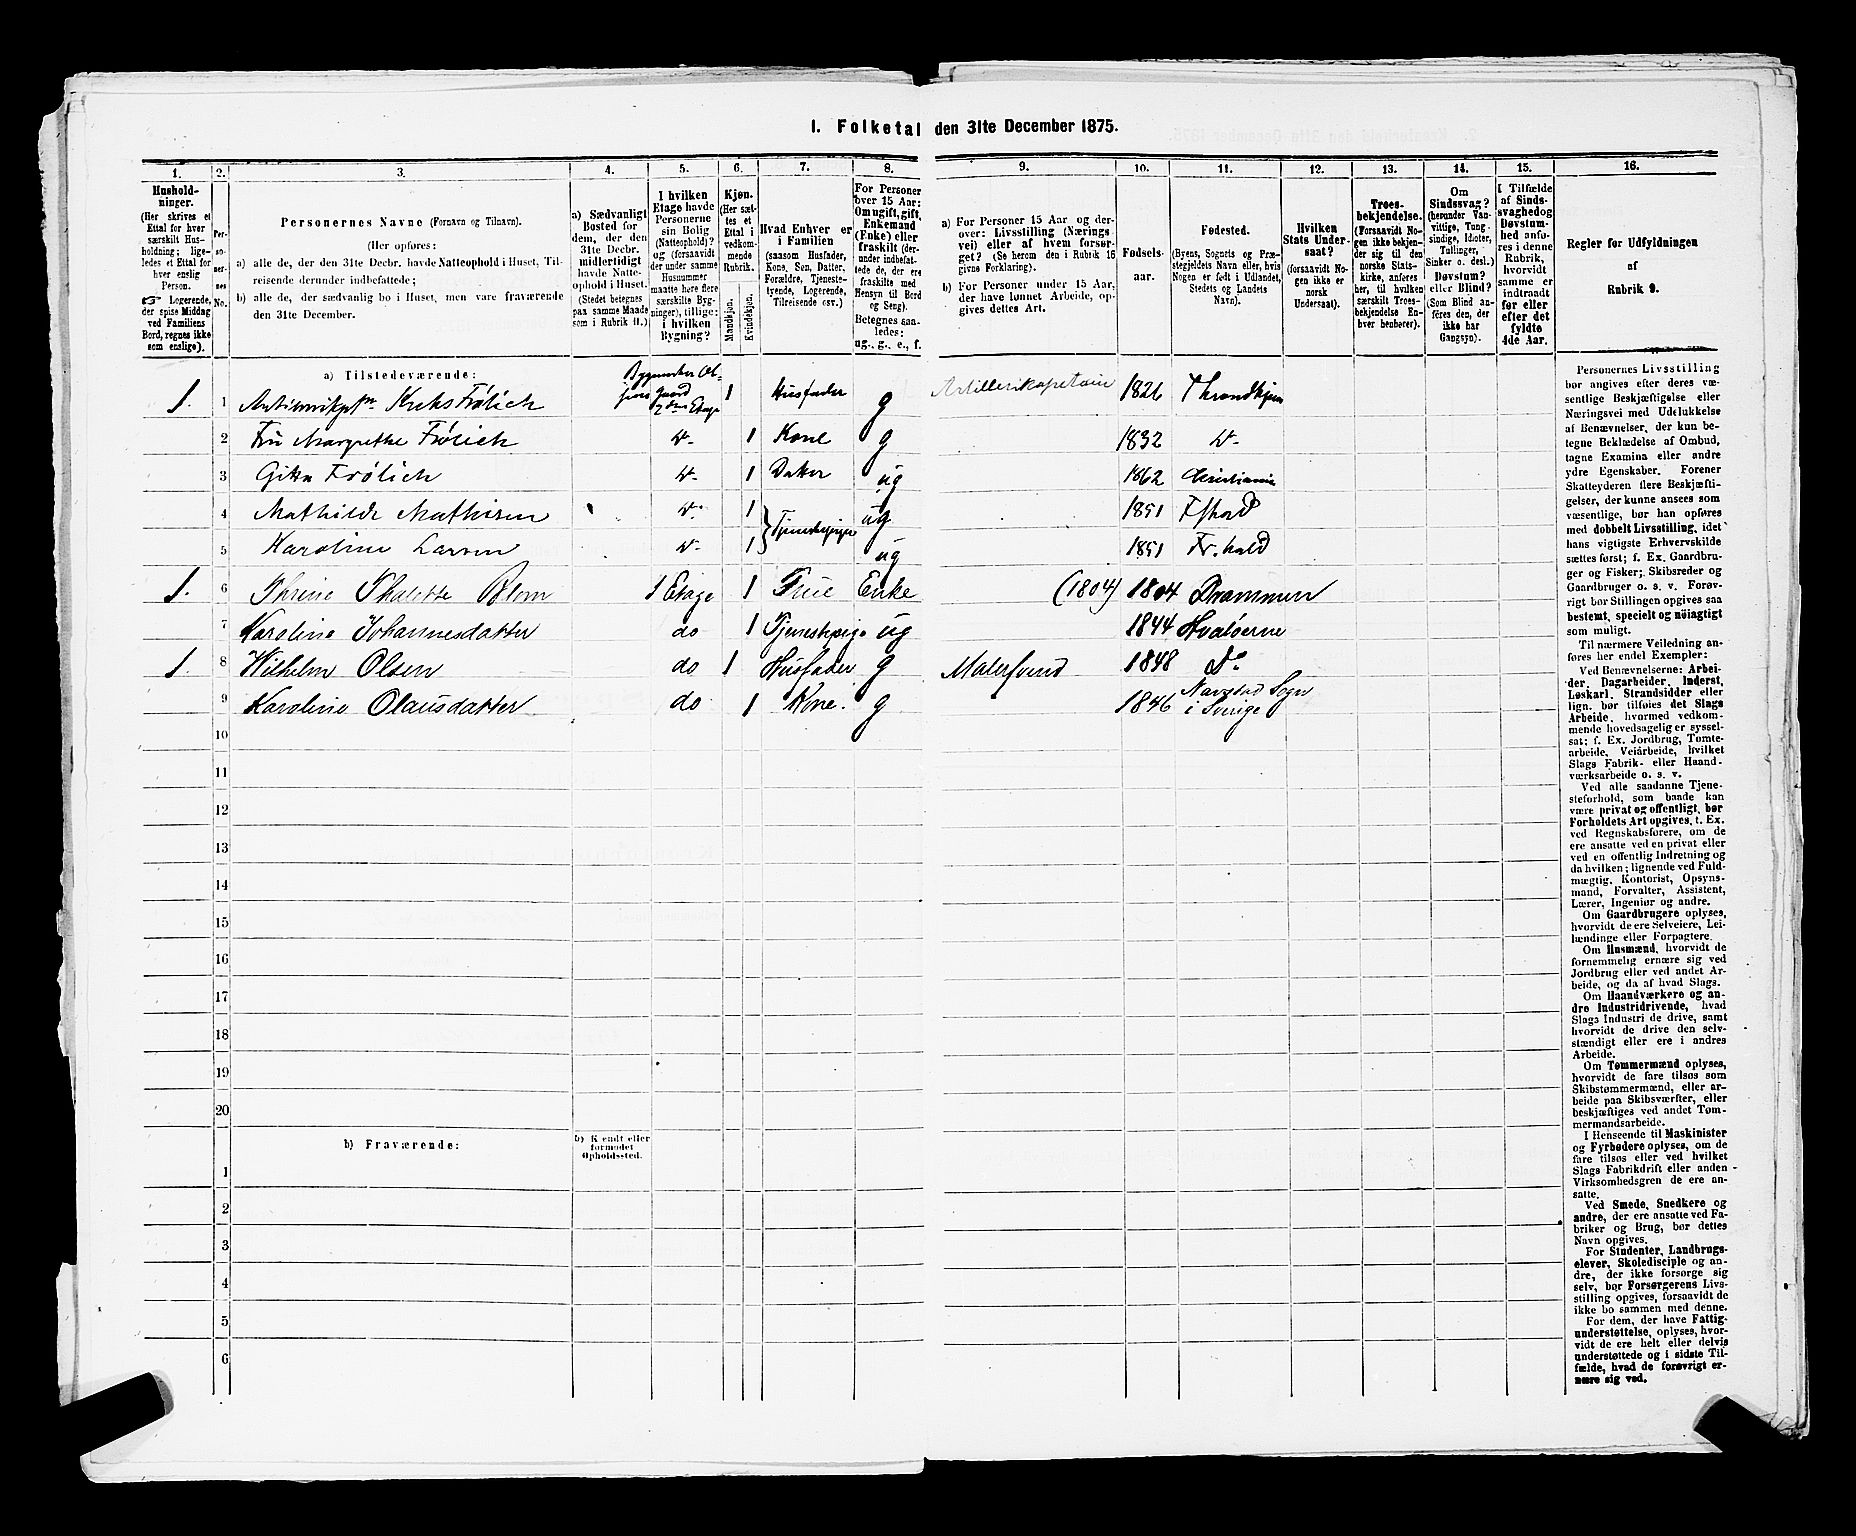 1. Folketal den 31te December 1875.
1. 2. 3. 4. 5. 6. 7. 8. 9. 10. 11. 12. 13. 14. 15. 16.
Hushold-
ninger.
(Her skrives et
Ettal for hver
særskilt Hus-
holdning; lige-
ledes et Ettal for
hver enslig
Person.
☞ Logerende,
der spise Middag
ved Familiens
Bord, regnes ikke
som enslige).
Per-
so-
ner-
nes
No.
Personernes Navne (Fornavn og Tilnavn).
(Her opføres:
a) alle de, der den 31te Decbr. havde Natteophold i Huset, Til-
reisende derunder indbefattede;
b) alle de, der sædvanlig bo i Huset, men vare fraværende
den 31te December.
a) Sædvanligt
Bosted for
dem, der den
31te Decbr.
midlertidigt
havde Natte-
ophold i Huset.
(Stedet betegnes
paa samme Maade
som i Rubrik 11.)
I hvilken
Etage havde
Personerne
sin Bolig
(Natteophold)?
og (forsaavidt
der under samme
Husnummer
maatte høre flere
særskilte Byg-
ninger), tillige:
i hvilken
Bygning?
Kjøn.
(Her sæt-
tes et
Ettal i
vedkom-
mende
Rubrik.
Mandkjøn.
Kvindekjøn.
Hvad Enhver er
i Familien
(saasom Husfader,
Kone, Søn, Datter,
Forældre, Tjeneste-
tyende, Logerende,
Tilreisende osv.)
For Personer
over 15 Aar:
Om ugift, gift,
Enkemand
(Enke) eller
fraskilt (der-
under indbefat-
tede de, der ere
fraskilte med
Hensyn til Bord
og Seng).
Betegnes saa-
ledes:
ug., g., e., f.
a) For Personer 15 Aar og der-
over: Livsstilling (Nærings-
vei) eller af hvem forsør-
get? (Se herom den i Rubrik 16
givne Forklaring).
b) For Personer under 15 Aar,
der have lønnet Arbeide, op-
gives dettes Art.
Fødsels-
aar.
Fødested.
(Byens, Sognets og Præ-
stegjeldets Navn eller, hvis
Nogen er født i Udlandet,
Stedets og Landets
Navn).
Hvilken
Stats Under-
saat?
(forsaavidt No-
gen ikke er
norsk
Undersaat).
Troes-
bekjendelse.
(Forsaavidt No-
gen ikke bekjen-
der sig til den
norske Stats-
kirke, anføres
her, til hvilken
særskilt Troes-
bekjendelse En-
hver henhører).
Om
Sindssvag?
(herunder Van-
vittige, Tung-
sindige, Idioter,
Tullinger,
Sinker o. desl.)
Døvstum?
eller Blind?
(Som Blind an-
føres den, der
ikke har
Gangsyn).
I Tilfælde
af Sinds-
svaghed og
Døvstum-
hed anfø-
res i denne
Rubrik,
hvorvidt
samme er
indtraadt
før eller
efter det
fyldte
4de Aar.
Regler for Udfyldningen
af
Rubrik 9.
a) Tilstedeværende:
1. 1 Krebs Frølich 2den Etage 1 Husfader g Artillerikapetain 1826 Throndhjem
2 Fru Margrethe Frølich 1 Kone g 1832
3 Gitta Frölich 1 Datter ug 1862 Christiania
4 Mathilde Mathisen 1 ug 1851 Fshald
5 Karoline Larsen 1 ug 1851 Fr.hald
1. 6 Thrine Thalette Blom 1 Etage 1 Frue Enke (1804) 1804 Drammen
7 Karoline Johannesdatter do 1 Tjenestepige ug 1844 Hvaløerne
1. 8 Wilhelm Olsen do 1 Husfader g Malersvend 1848 Do
9 Karoline Olausdatter do 1 Kone. g 1846 Navestad Sogn
i Sverige
10
11
12
13
14
15
16
17
18
19
20
b) Fraværende:
b) Kjendt eller
formodet
Opholdssted.
1
2
3
4
5
6
Personernes Livsstilling
bør angives efter deres væ-
sentlige Beskjæftigelse eller
Næringsvei med Udelukkelse
af Benævnelser, der kun be-
tegne Beklædelse af Ombud,
tagne Examina eller andre
ydre Egenskaber. Forener
Skatteyderen flere Beskjæfti-
gelser, der kunne ansees som
væsentlige, bør han opføres
med dobbelt Livsstilling, idet
hans vigtigste Erhvervskilde
sættes først; f. Ex. Gaardbru-
ger og Fisker; Skibsreder og
Gaardbruger o. s. v. Forøv-
rigt bør Stillingen opgives saa
bestemt, specielt og nøiagtigt
som muligt.
Til nærmere Veiledning an-
føres her endel Exempler:
Ved Benævnelserne: Arbei-
der, Dagarbeider, Inderst,
Løskarl, Strandsidder eller
lign. bør tilføies det Slags
Arbeide, hvormed vedkom-
mende hovedsagelig er syssel-
sat; f. Ex. Jordbrug, Tomte-
arbeide, Veiarbeide, hvilket
Slags Fabrik- eller Haand-
værksarbeide o. s. v.
Ved alle saadanne Tjene-
steforhold, som baade kan
være privat og offentligt, bør
Forholdets Art opgives, t. Ex.
ved Regnskabsførere, om de
ere ansatte ved en privat eller
ved en offentlig Indretning og
da hvilken; lignende ved Fuld-
mægtig, Kontorist, Opsyns-
mand, Forvalter, Assistent,
Lærer, Ingeniør og andre.
Om Gaardbrugere oplyses,
hvorvidt de ere Selveiere, Lei-
lændinge eller Forpagtere.
Om Husmænd, hvorvidt de
fornemmelig ernære sig ved
Jordbrug eller ved andet Ar-
beide, og da af hvad Slags.
Om Haandværkere og an-
dre Industridrivende, hvad
Slags Industri de drive, samt
hvorvidt de drive den selv-
stændigt eller ere i andres
Arbeide.
Om Tømmermænd oplyses,
hvorvidt de fare tilsøs som
Skibstømmermænd, eller ar-
beide paa Skibsværfter, eller
beskjæftiges ved andet Tøm-
mermandsarbeide.
I Henseende til Maskinister
og Fyrbødere oplyses, om de
fare tilsøs eller ved hvilket
Slags Fabrikdrift eller anden
Virksomhedsgren de ere an-
satte.
Ved Smede, Snedkere og
andre, der ere ansatte ved Fa-
briker og Brug, bør dettes
Navn opgives.
For Studenter, Landbrugs-
elever, Skoledisciple og an-
dre, der ikke forsørge sig
selv, bør Forsørgerens Livs-
stilling opgives, forsaavidt de
ikke bo sammen med denne.
For dem, der have Fattig-
understøttelse, oplyses, hvor-
vidt de ere helt eller delvis
understøttede og i sidste Til-
fælde, hvad de forøvrigt er-
nære sig ved.